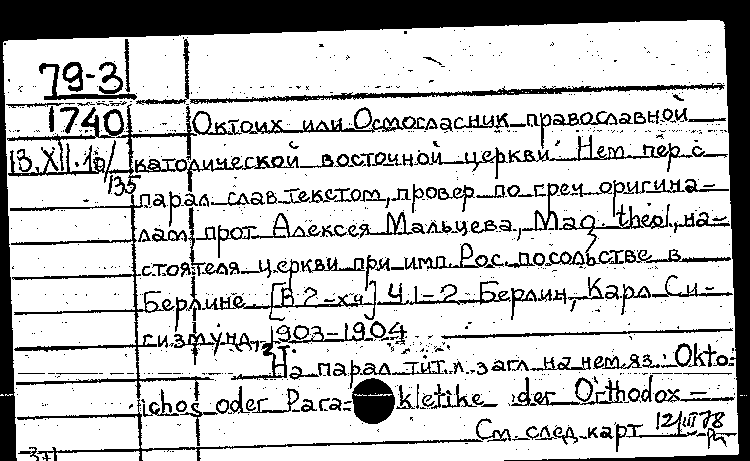 79-3
1740
13.XII.1а/135
Октоих или Осмогласник православной
католической восточной церкви. Нем. пер. с
парал. слав. текстом, провер. по греч. оригина-
лам, прот. Алексея Мальцева, Mag. theol., на-
стоятеля церкви при имп. Рос. посольстве в
Берлине [В 2-хч] Ч.1-2 Берлин, Карл Си-
гизмунд, 1903-1904
2т.
На парал. тит. л. загл. на нем. яз.: Okto-
ichos oder Para-kletike der Orthodox-
См. след. карт
12/III 78